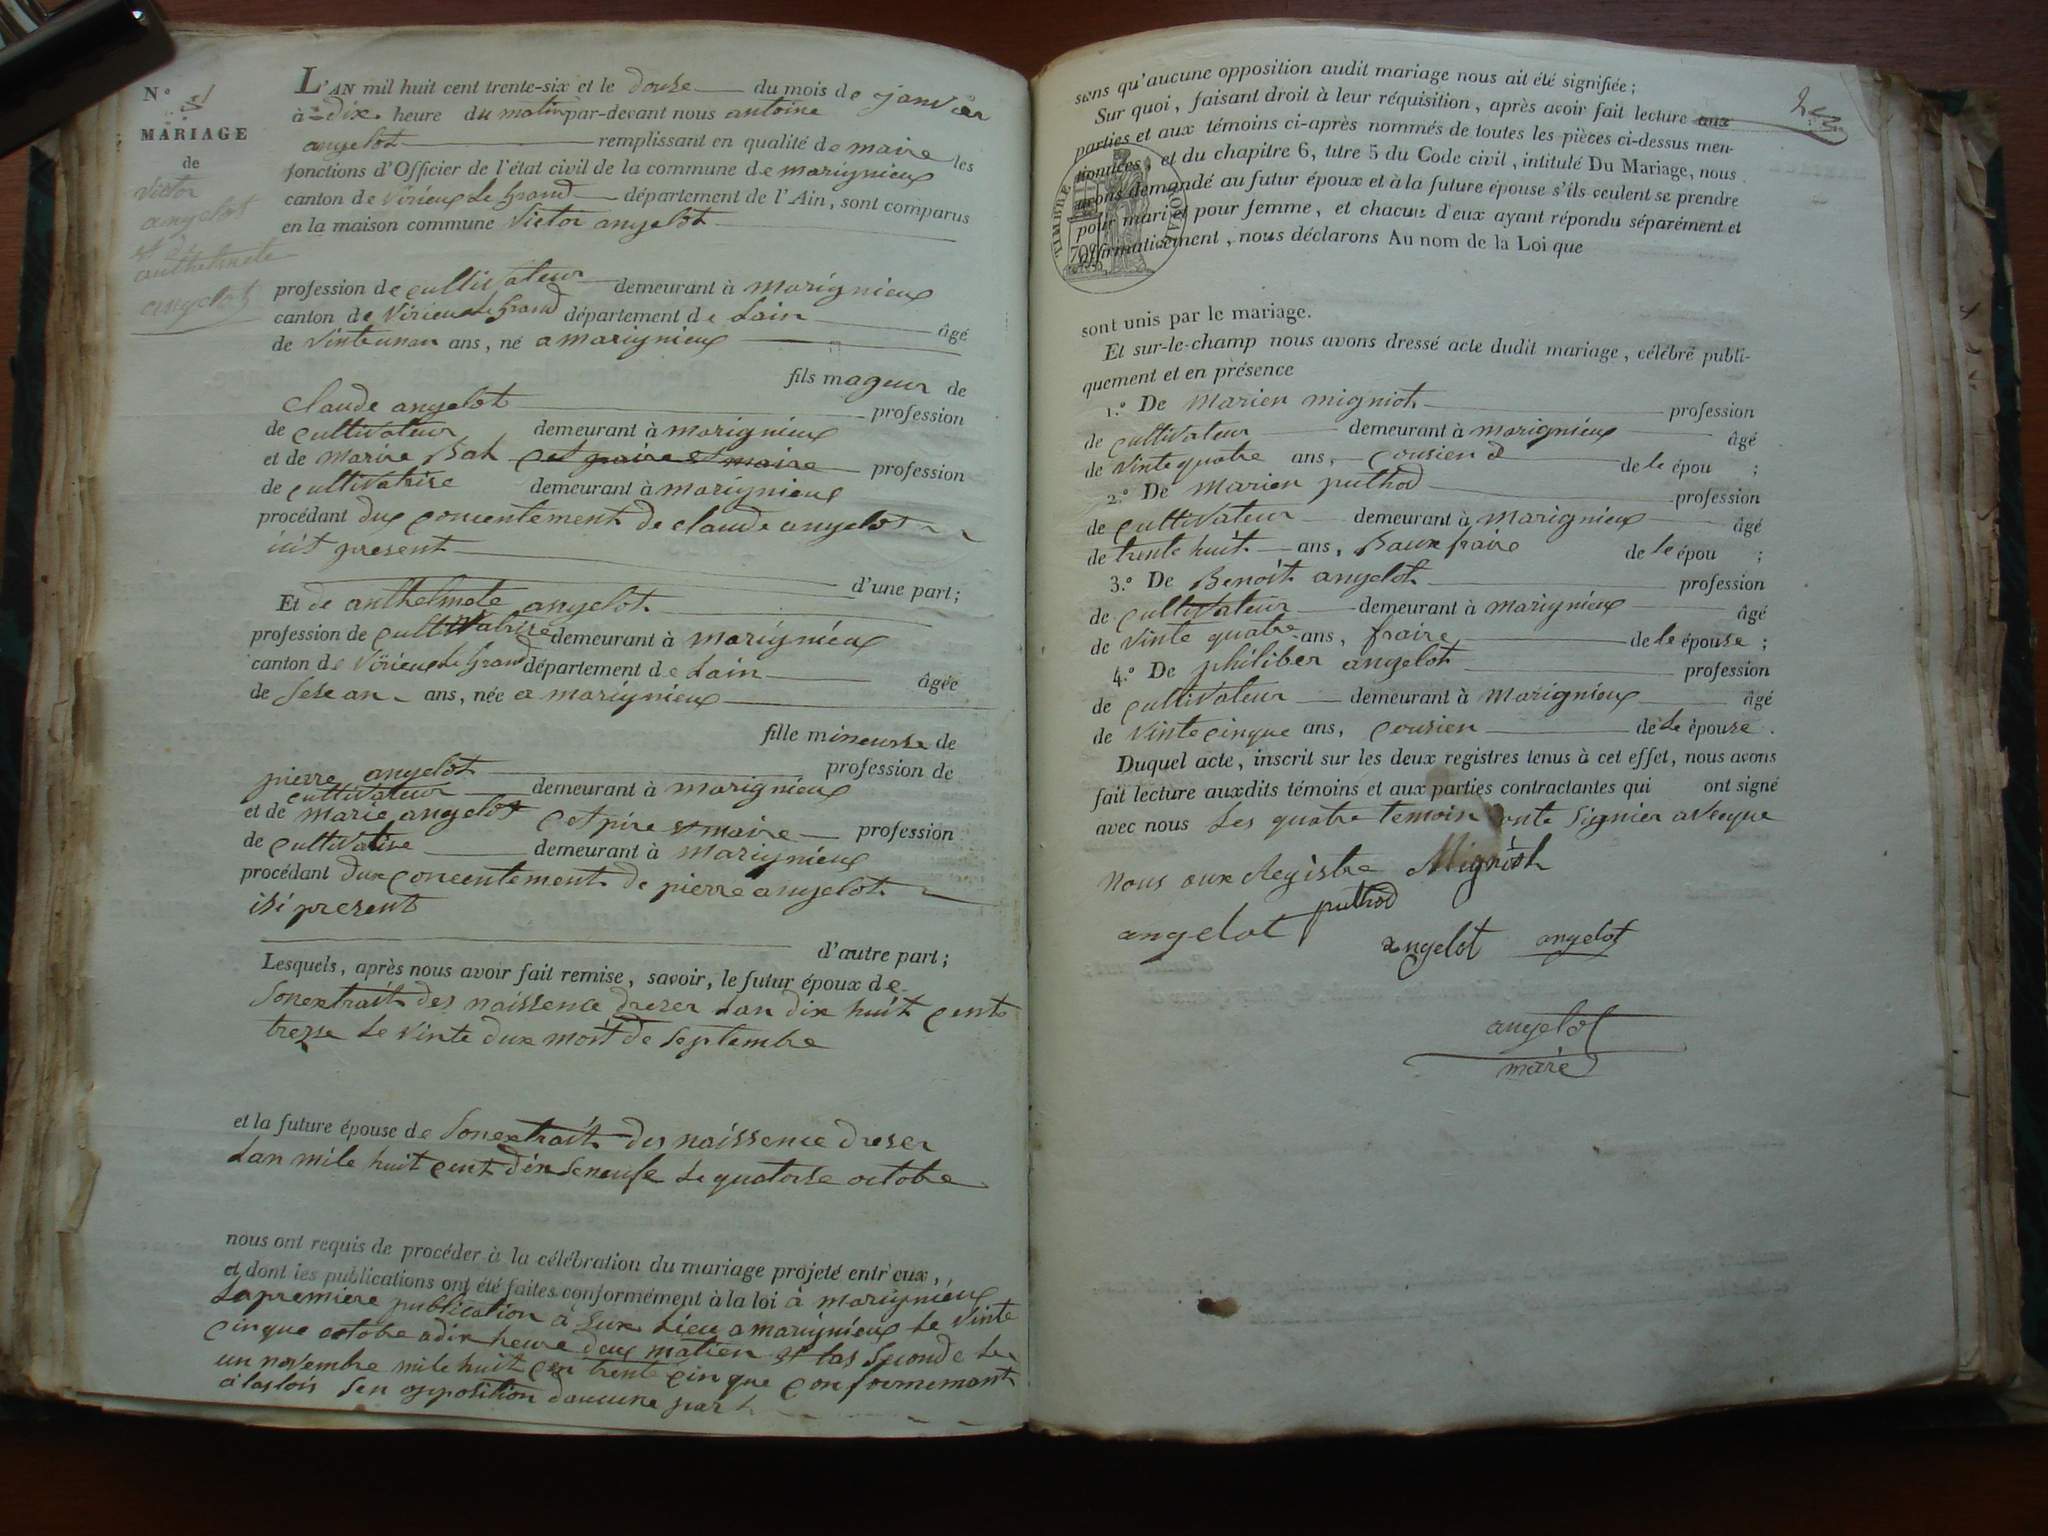 N° 1
MARIAGE
de
victor
angelot
et de
anthelmete
angelot
L'AN mil huit cent trente-six et le douse du mois de janvier
à dix heure du matin par-devant nous antoine
angelot remplissant en qualité de maire les
fonctions d'Officier de l'état civil de la commune de marignieux
canton de Virieux Le Grand département de l'Ain, sont comparus
en la maison commune Victor angelot
profession de cultivateur demeurant à marignieux
canton de Virieux Le Grand département de Lain âgé
de vinteunan ans, né a marignieux
fils mageur de
Claude angelot profession
de cultivateur demeurant à marignieux
et de marie Bal cet paire et maire profession
de cultivatrise demeurant à marignieux
procédant dux concentement de claude angelot
icit present
d'une part;
Et de anthelmete angelot
profession de cultivatrise demeurant à marignieux
canton de Virieux Le Grand département de Lain âgée
de sese an ans, née a marignieux
fille mineurse de
pierre angelot profession de
cultivateur demeurant à marignieux
et de marie angelot cet pire et maire profession
de cultivatise demeurant à marignieux
procédant dux concentement de pierre angelot
isi present
d'autre part;
Lesquels, après nous avoir fait remise, savoir, le futur époux de
sonextrait des naissence dreser Lan dix huit cents
trezse Le vinte dux most de septembre
et la future épouse de sonextrait des naissence dreser
Lan mile huit cent dix seneufe Le quatorse octobre
nous ont requis de procéder à la célébration du mariage projeté entr'eux,
et dont les publications ont été faites conformément à la loi à marignieux
La premiere publication à Lieu a marignieux Le vinte
cinque octobre adix heure dux matien et las seconde Le
un novembre mile huit cen trente cinque conformemant
a las lois sen opposition daucune part
sans qu'aucune opposition audit mariage nous ait été signifiée;
Sur quoi, faisant droit à leur réquisition, après avoir fait lecture aux
parties et aux témoins ci-après nommés de toutes les pièces ci-dessus men-
tionnées, et du chapitre 6, titre 5 du Code civil, intitulé Du Mariage, nous
avons demandé au futur époux et à la future épouse s'ils veulent se prendre
pour mari et pour femme, et chacun d'eux ayant répondu séparément et
affirmativement, nous déclarons Au nom de la Loi que
TIMBRE ROYAL
70
sont unis par le mariage.
Et sur-le-champ nous avons dressé acte dudit mariage, célébré publi-
quement et en présence
1.° De Marien migniot profession
de cultivateur demeurant à marignieux âgé
de vinte quatre ans, cousien d de le épou ;
2.° De Marien puthod profession
de cultivateur demeurant à Marignieux âgé
de trente huit ans, Baux fraire de le épou ;
3.° De Benoit angelot profession
de cultivateur demeurant à marignieux âgé
de vinte quatre ans, fraire de le épouse ;
4.° De philiber angelot profession
de cultivateur demeurant à Marignieux âgé
de vinte cinque ans, cousien de Le épouse .
Duquel acte, inscrit sur les deux registres tenus à cet effet, nous avons
fait lecture auxdits témoins et aux parties contractantes qui ont signé
avec nous Les quatre temoin onte signier avecque
nous aux Registre Migniot
puthod
angelot angelot angelot
angelot
maire